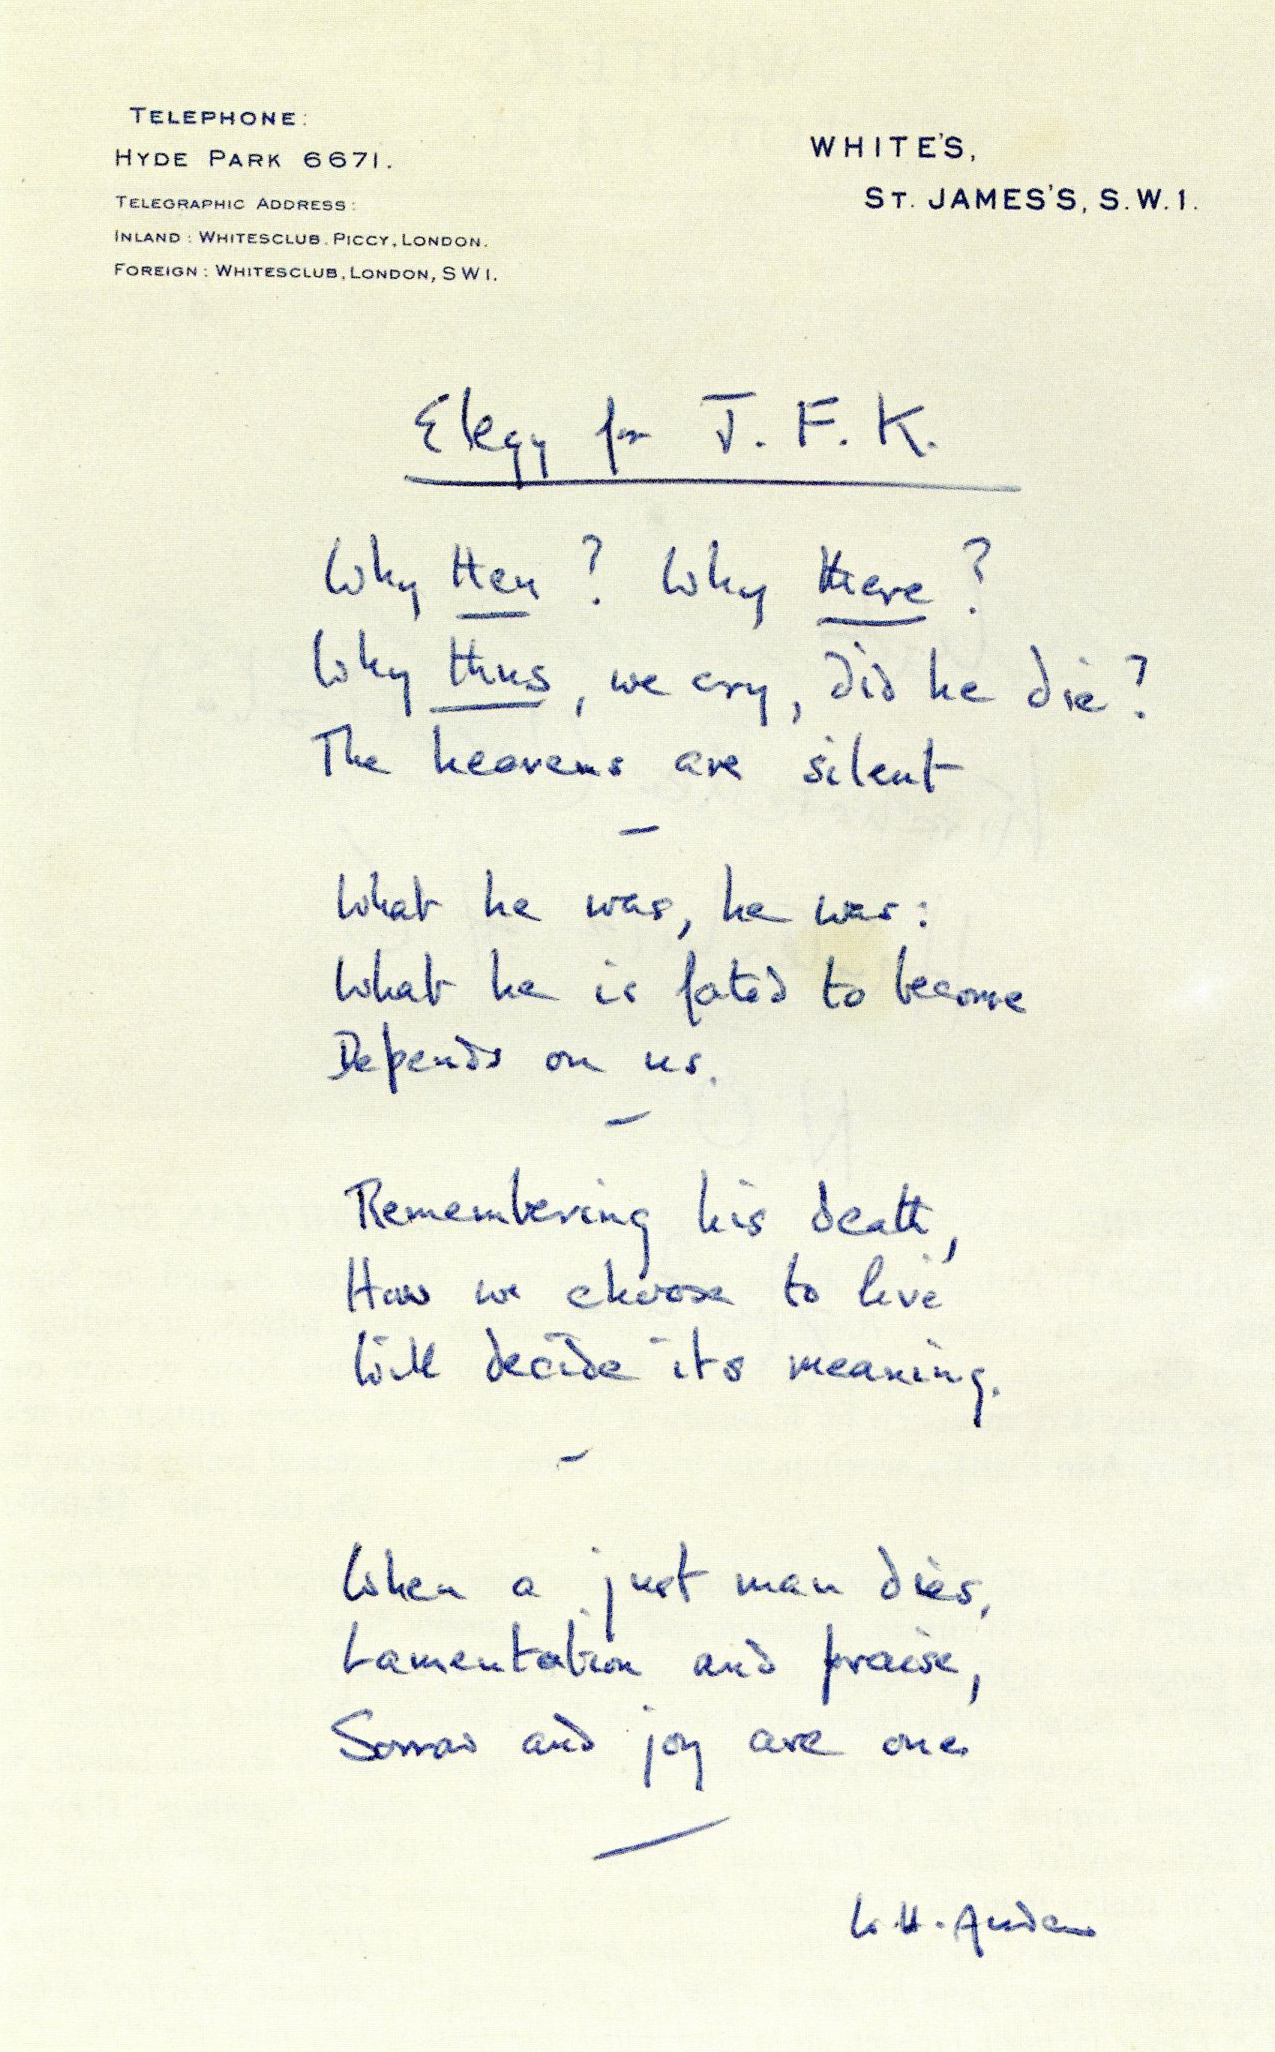 TELEPHONE:
HYDE PARK 6671.
TELEGRAPHIC ADDRESS:
INLAND: WHITESCLUB. PICCY, LONDON.
FOREIGN: WHITESCLUB, LONDON, SW1.
WHITE'S,
ST. JAMES'S, S.W.1.
Elegy for J.F.K.
Why then? Why there?
Why thus, we cry, did he die?
The heavens are silent
—
What he was, he was:
What he is fated to become
Depends on us.
—
Remembering his death,
How we choose to live
Will decide its meaning.
—
When a just man dies,
Lamentation and praise,
Sorrow and joy are one.
W.H. Auden